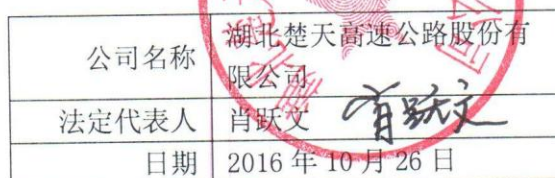 公司名称 湖北楚天高速公路股份有
限公司
法定代表人 肖跃文 肖跃文
日期 2016年10月26日